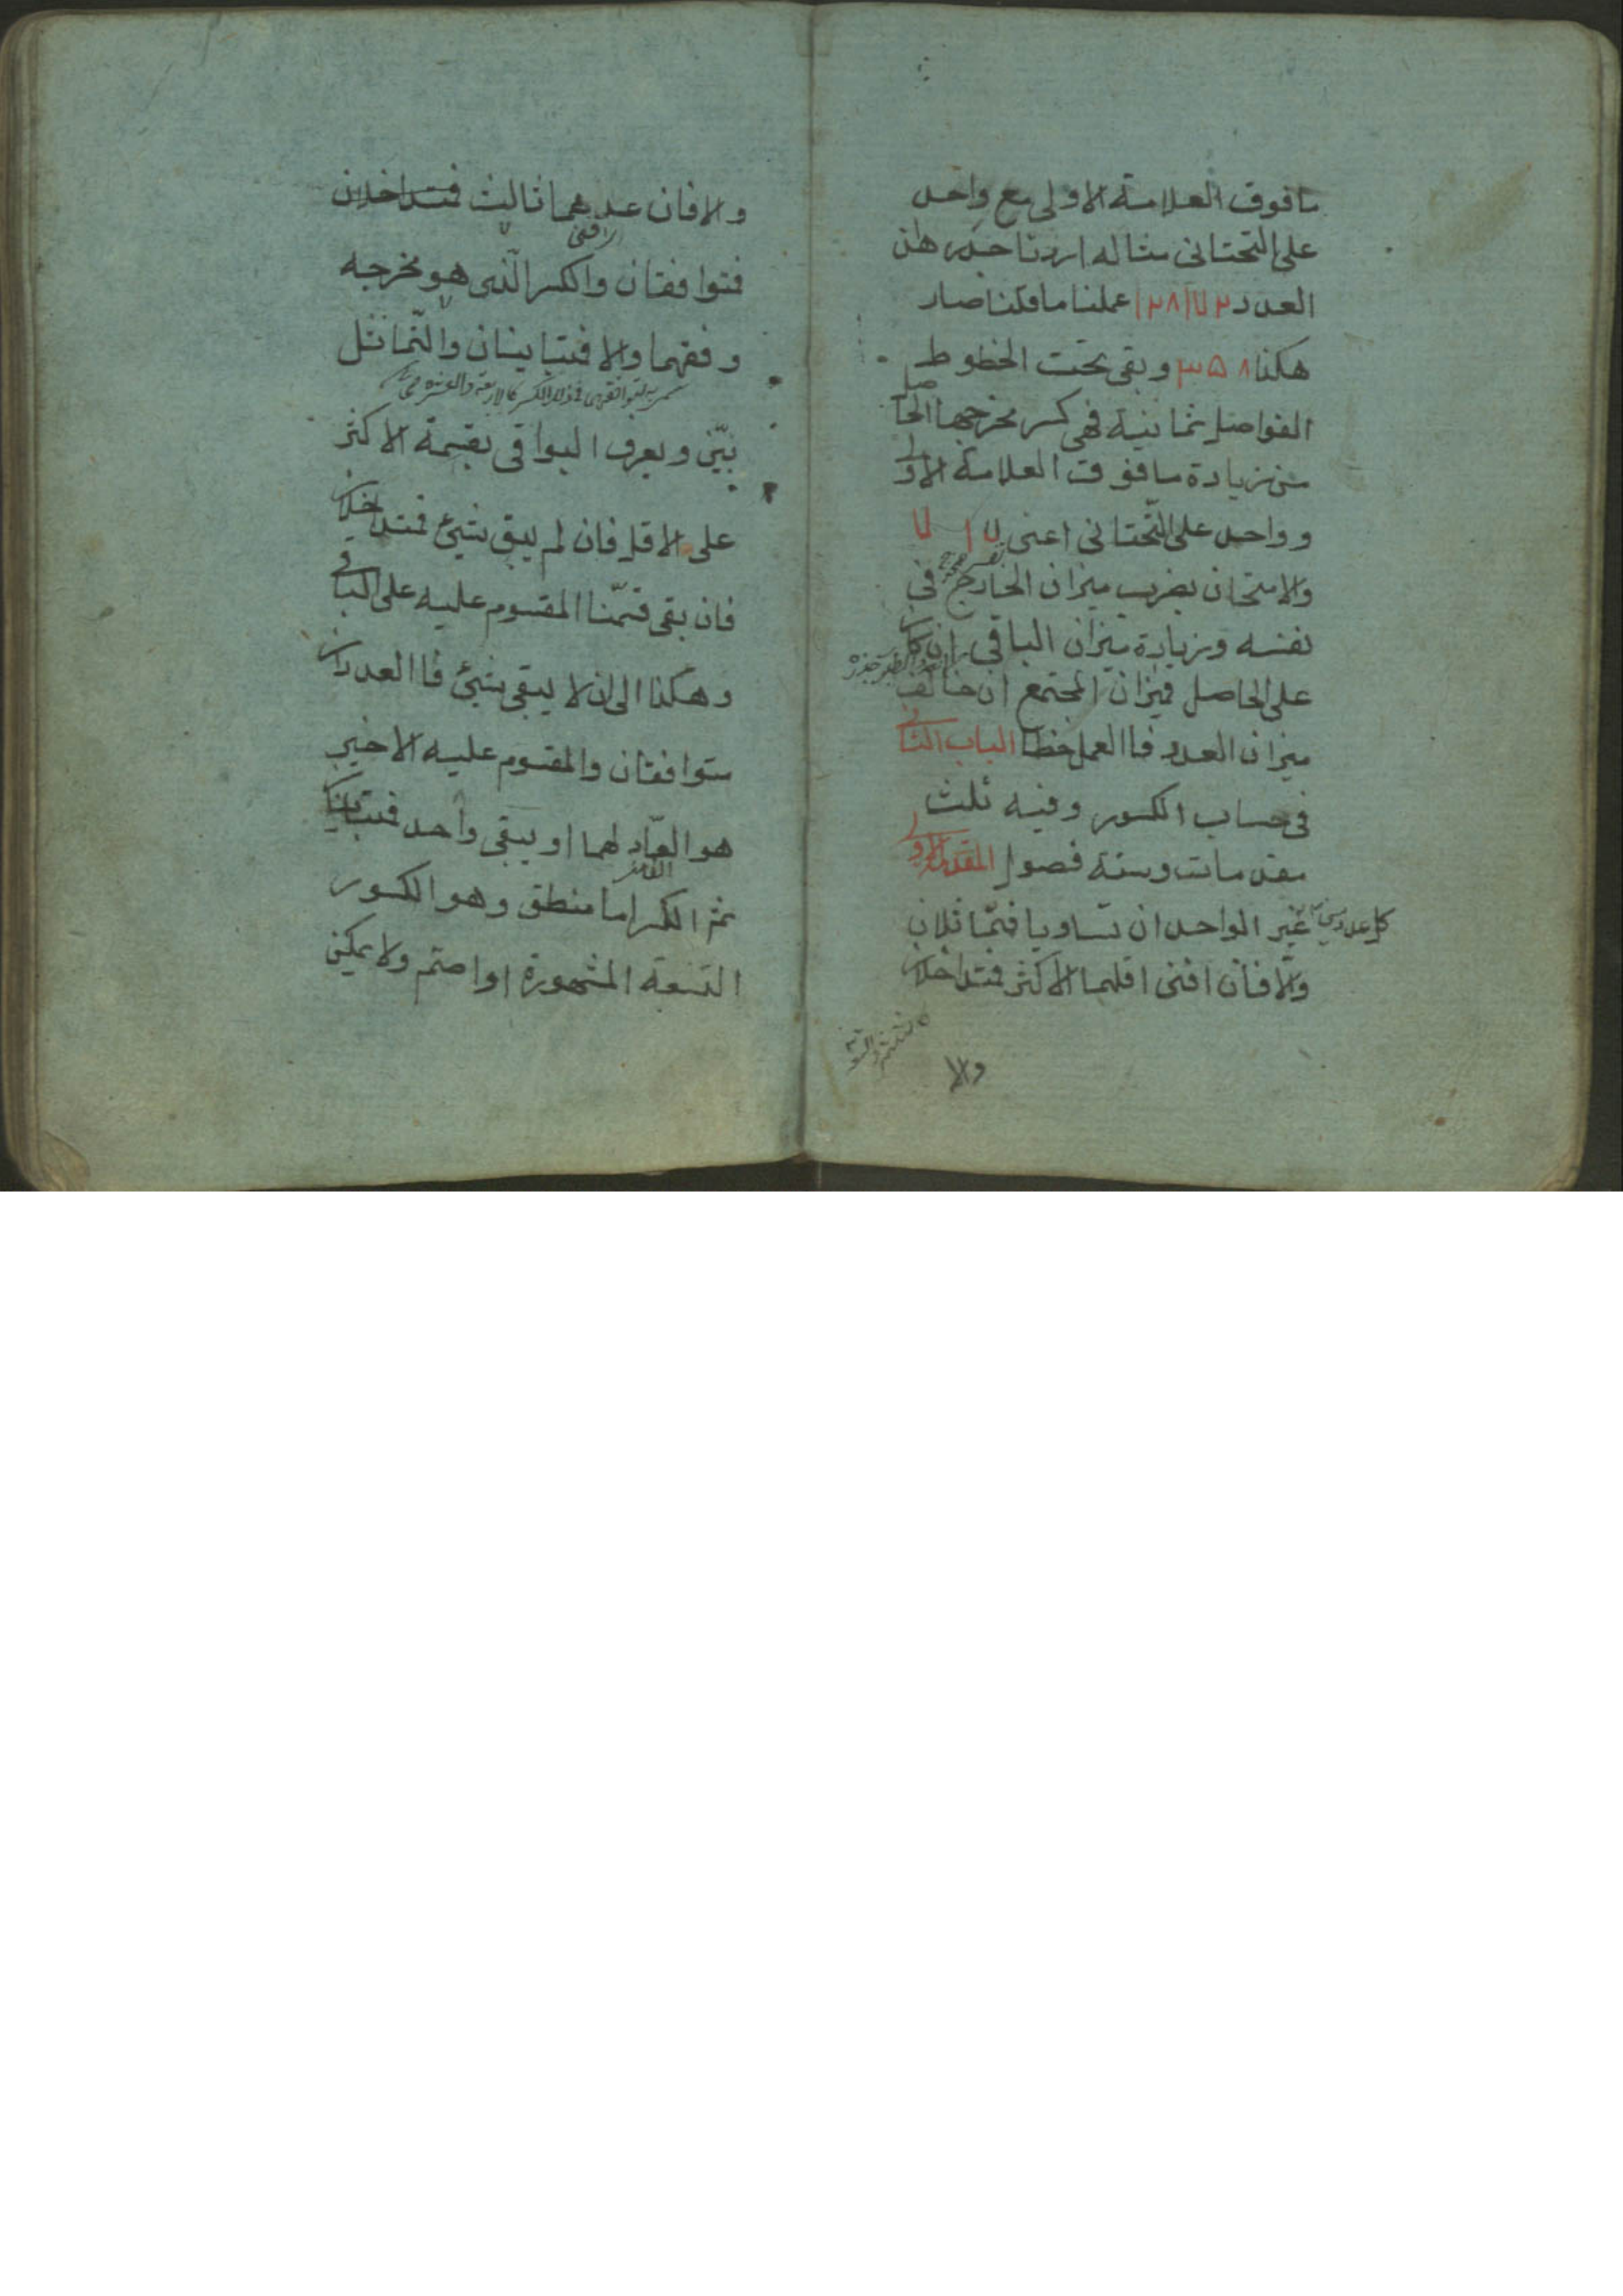 ما فوق العلامة الاولى مع واحد
على التحتانى مثاله اردنا جذر هذا
العدد ١٢٨١٧٢ عملنا ما قلنا صار
هكذا ٣٥٨ وبقى تحت الخطوط
الفواصل ثمانية فهى كسر مخرجها الحاصل
من زيادة ما فوق العلامة الاولى
وواحد على التحتانى اعنى ٧١٧
والامتحان بضرب ميزان الخارج فى
نفسه وزيادة ميزان الباقى ان كان
على الحاصل فميزان المجتمع ان خالف
ميزان العدد فاالعمل خطا الباب الثانى
فى حساب الكسور وفيه ثلث
مقدمات وستة فصول المقدمة الاولى
كل عددين غير الواحد ان تساويا فتماثلان
والا فان افنى اقلهما الاكثر فتداخلان
والا
والا فان عدهما ثالث فتداخلان
فتوافقان والكسر الذى هو مخرجه
وفقهما والا فتباينان والتماثل
بيّن ويعرف البواقى بقسمة الاكثر
على الاقل فان لم يبق شىئ فتداخلان
فان بقى قسّمنا المقسوم عليه على الباقى
وهكذا الى ان لا يبقى شىئ فاالعددان
متوافقان والمقسوم عليه الاخير
هو العادّ لهما او يبقى واحد فتباينان
ثم الكسر اما منطق وهو الكسور
التسعة المشهورة او اصم ولا يمكن